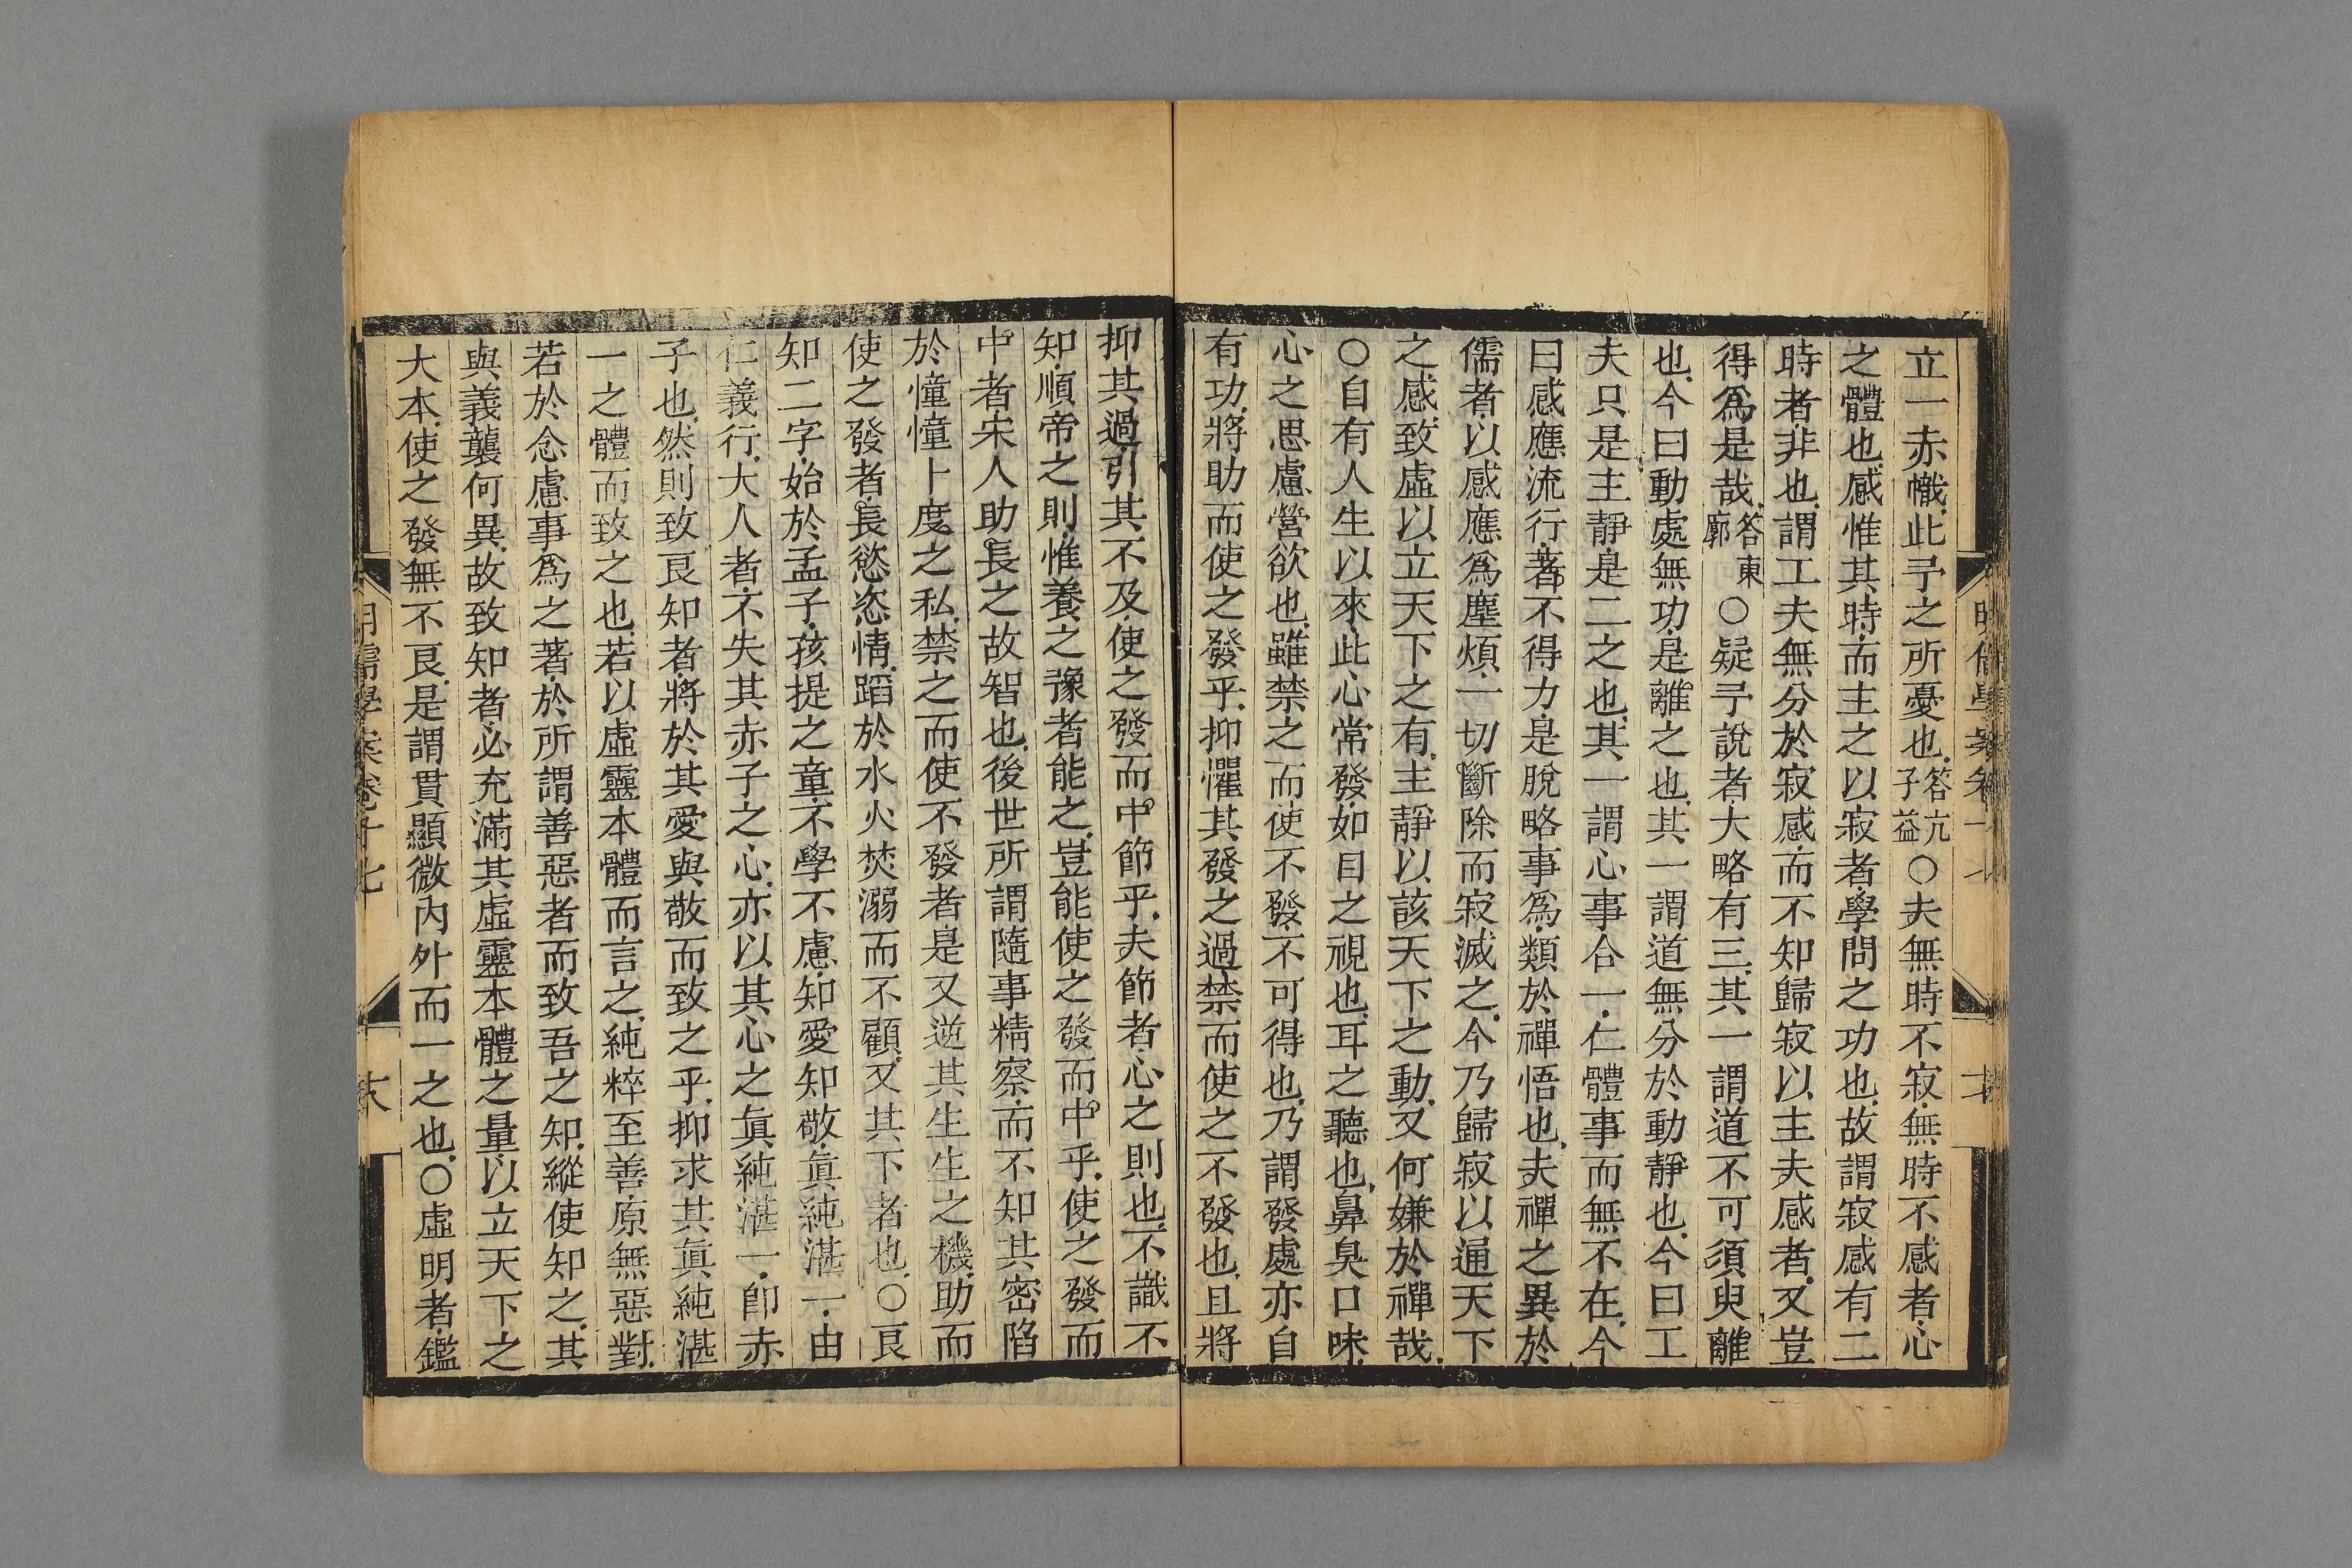 立一赤幟此予之所憂也答亢子益〇夫無時不寂無時不感者心
之體也感惟其時而主之以寂者學問之功也故謂寂感有二
時者非也謂工夫無分於寂感而不知歸寂以主夫感者又豈
得爲是哉答東廓〇疑予說者大略有三其一謂道不可須臾離
也今曰動處無功是離之也其一謂道無分於動靜也今曰工
夫只是主靜是二之也其一謂心事合一仁體事而無不在今
曰感應流行著不得力是脫略事爲類於禪悟也夫禪之異於
儒者以感應爲塵煩一切斷除而寂滅之今乃歸寂以通天下
之感致虛以立天下之有主靜以該天下之動又何嫌於禪哉
〇自有人生以來此心常發如目之視也耳之聽也鼻臭口味
心之思慮營欲也雖禁之而使不發不可得也乃謂發處亦自
有功將助而使之發乎抑懼其發之過禁而使之不發也且將
抑其過引其不及使之發而中節乎夫節者心之則也不識不
知順帝之則惟養之豫者能之豈能使之發而中乎使之發而
中者宋人助長之故智也後世所謂隨事精察而不知其密陷
於憧憧卜度之私禁之而使不發者是又逆其生生之機助而
使之發者長慾恣情蹈於水火焚溺而不顧又其下者也〇良
知二字始於孟子孩提之童不學不慮知愛知敬眞純湛一由
仁義行大人者不失其赤子之心亦以其心之眞純湛一卽赤
子也然則致良知者將於其愛與敬而致之乎抑求其眞純湛
一之體而致之也若以虛靈本體而言之純粹至善原無惡對
若於念慮事爲之著於所謂善惡者而致吾之知縱使知之其
與義襲何異故致知者必充滿其虛靈本體之量以立天下之
大本使之發無不良是謂貫顯微內外而一之也〇虛明者鑑
明儒學案卷十七